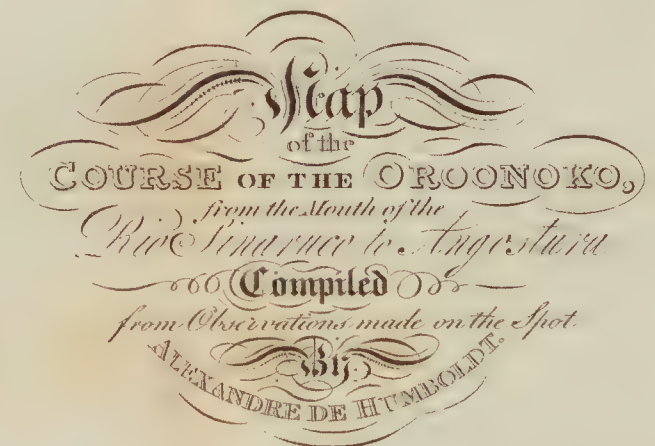 Map
of the
COURSE OF THE OROONOKO,
from the Mouth of the
Rio Sinaruco to Angostura
Compiled
from Observations made on the Spot.
By
ALEXANDRE DE HUMBOLDT.